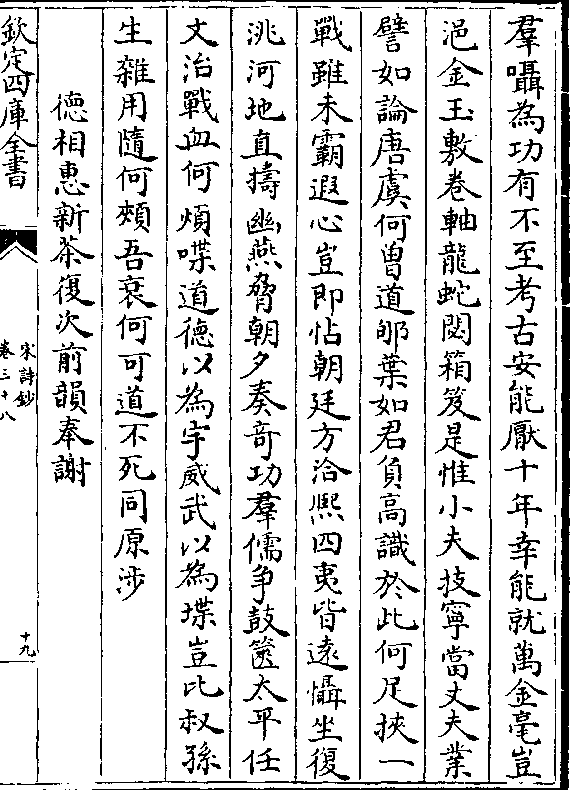 羣囁為功有不至考古安能厭十年幸能就萬金毫豈
浥金玉敷卷軸龍蛇閟箱笈是惟小夫技寧當丈夫業
譬如論唐虞何曽道郇葉如君負高識於此何足挾一
戰雖未霸遐心豈即怗朝廷方洽熙四夷皆遠懾坐復
洮河地直擣幽燕脅朝夕奏竒功羣儒争鼓篋太平任
文治戰血何煩喋道德以為宇威武以為堞豈比叔孫
生雜用隨何頰吾衰何可道不死同原涉
德相惠新茶復次前韻奉謝
欽定四庫全書
宋詩鈔
卷三十八
十九